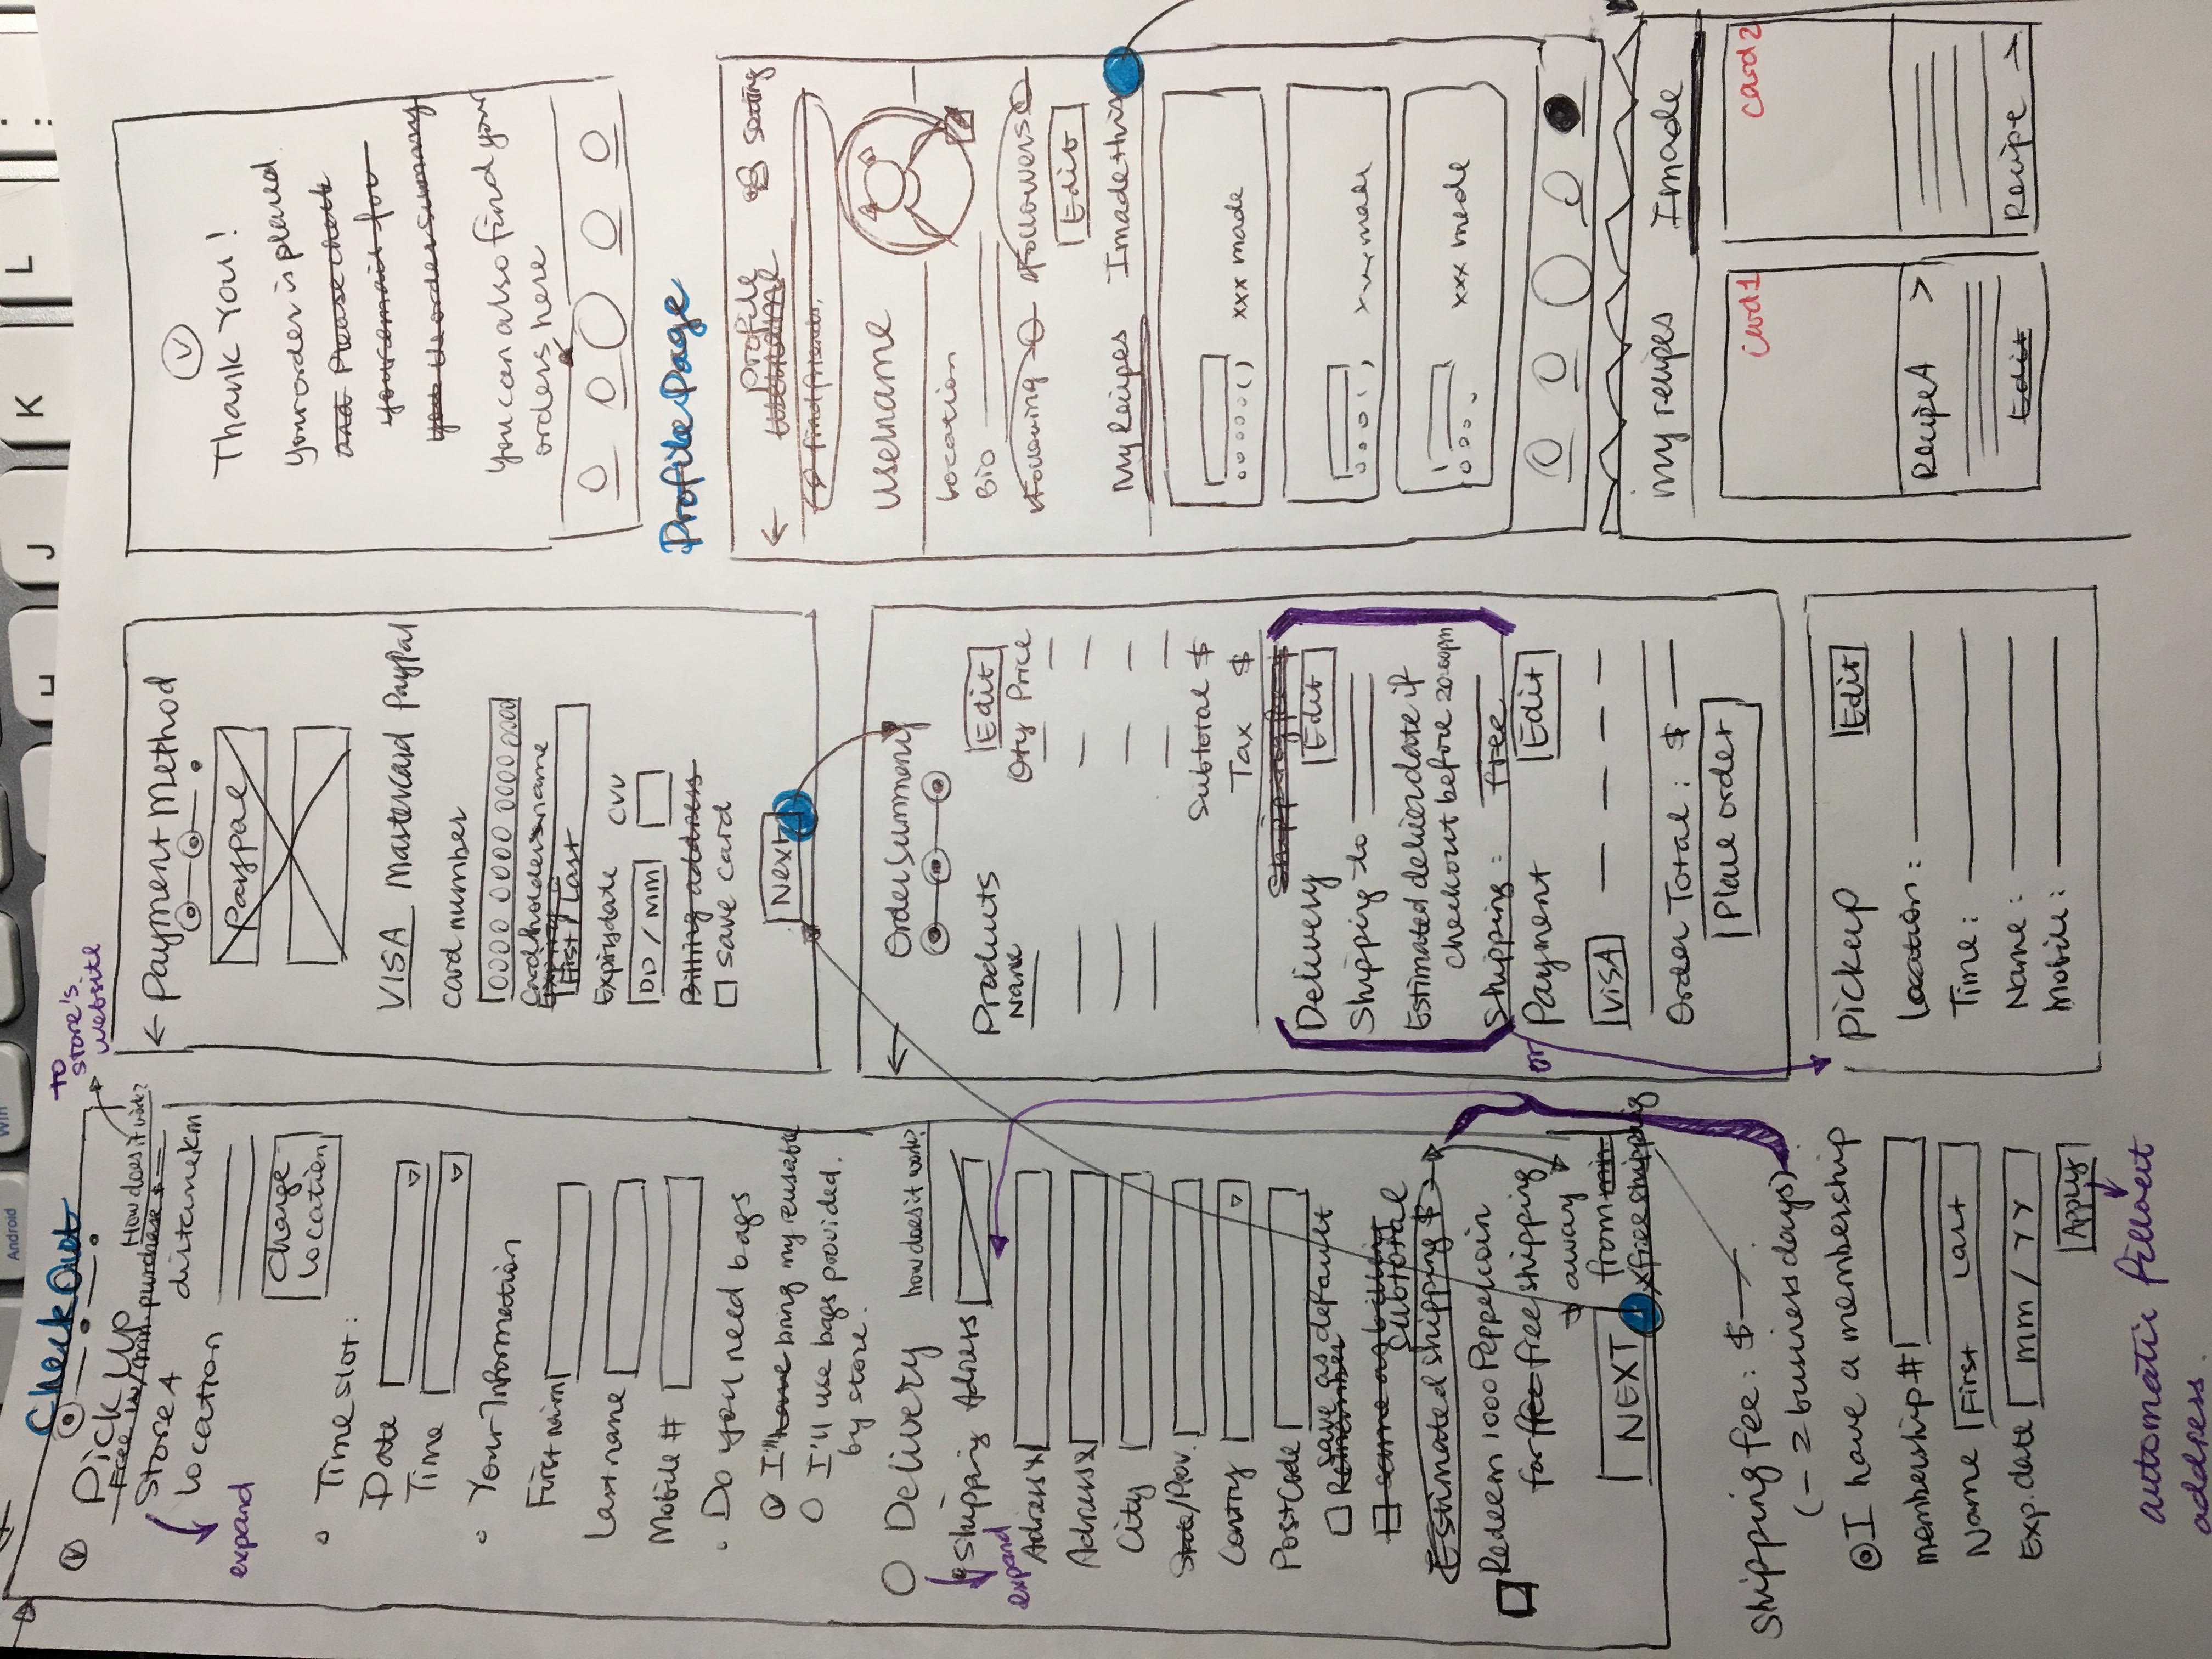 Android
Win
H
J
K
L
:
Check Out
Pick Up
Free w/ min. purchase $ —
How does it work?
to
store's
website
Store A
distance km
Location
expand
Change
Location
Time slot:
Date
Time
Your Information
First nam
Last name
Mobile #
Do you need bags
I'll have bring my reusable
I'll use bags provided.
by store.
Delivery
how does it work?
Shipping Adress
expand
Adress
Adress
City
State/Prov.
Contry
Post Code
save as default
Remember
same as billing
Subtotal
Estimated shipping $
Redeem 1000 Peppercoin
for ffee free shipping
$ away
from min.
x free shipping
NEXT
Shipping fee: $ —
(- 2 business days)
I have a membership
membership #
Name First Last
Exp. date mm / YY
Apply
automatic fillout
address.
← Payment Method
Paypal
VISA Mastercard PayPal
card number
0000 0000 0000 0000
Cardholder's name
Expiry
First / Last
Expiry date CVV
DD / mm
Billing address
save card
Next
Order Summery
Products Edit
Name Qty Price
Subtotal $
Tax $
Shipping fee $
Delivery Edit
Shipping to
Estimated deliver date if
checkout before 20:00pm
Shipping: free
or
Payment Edit
VISA
Order Total: $
Place order
Pickup Edit
Location:
Time:
Name:
Mobile:
Thank You!
Your order is placed
and Please check
your email for
you the order summary
You can also find your
orders here
Profile Page
profile
username
Setting
find friends.
username
Location
Bio
Following Followers
Edit
My Recipes I made this
xxx made
xxx made
xxx made
my recipes I made
card 1 card 2
Recipe A >
Edit
Recipe →